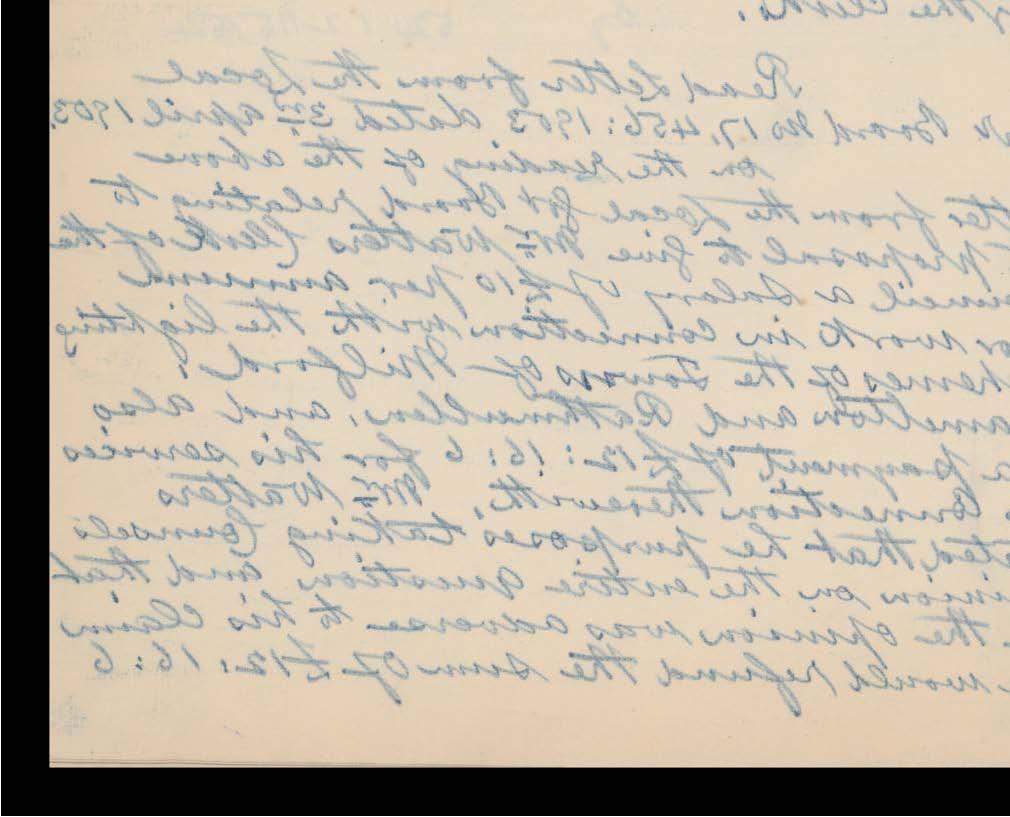 of the Clerk.
Read letter from the Local
Board No 17,456: 1903 dated 3rd April 1903.
On the reading of the above
from the Local Govt Board relating to
proposal to give Mr Watters Clerk of the
a salary of £10 per annum
work in connection with the lighting
of the Towns of Milford,
and Rathmullen, and also
payment of £12: 16: 6 for his services
Connection therewith, Mr Watters
that he purposes taking Counsels
on the entire question and that
the opinion was adverse to his claim
would refund the sum of £12: 16: 6